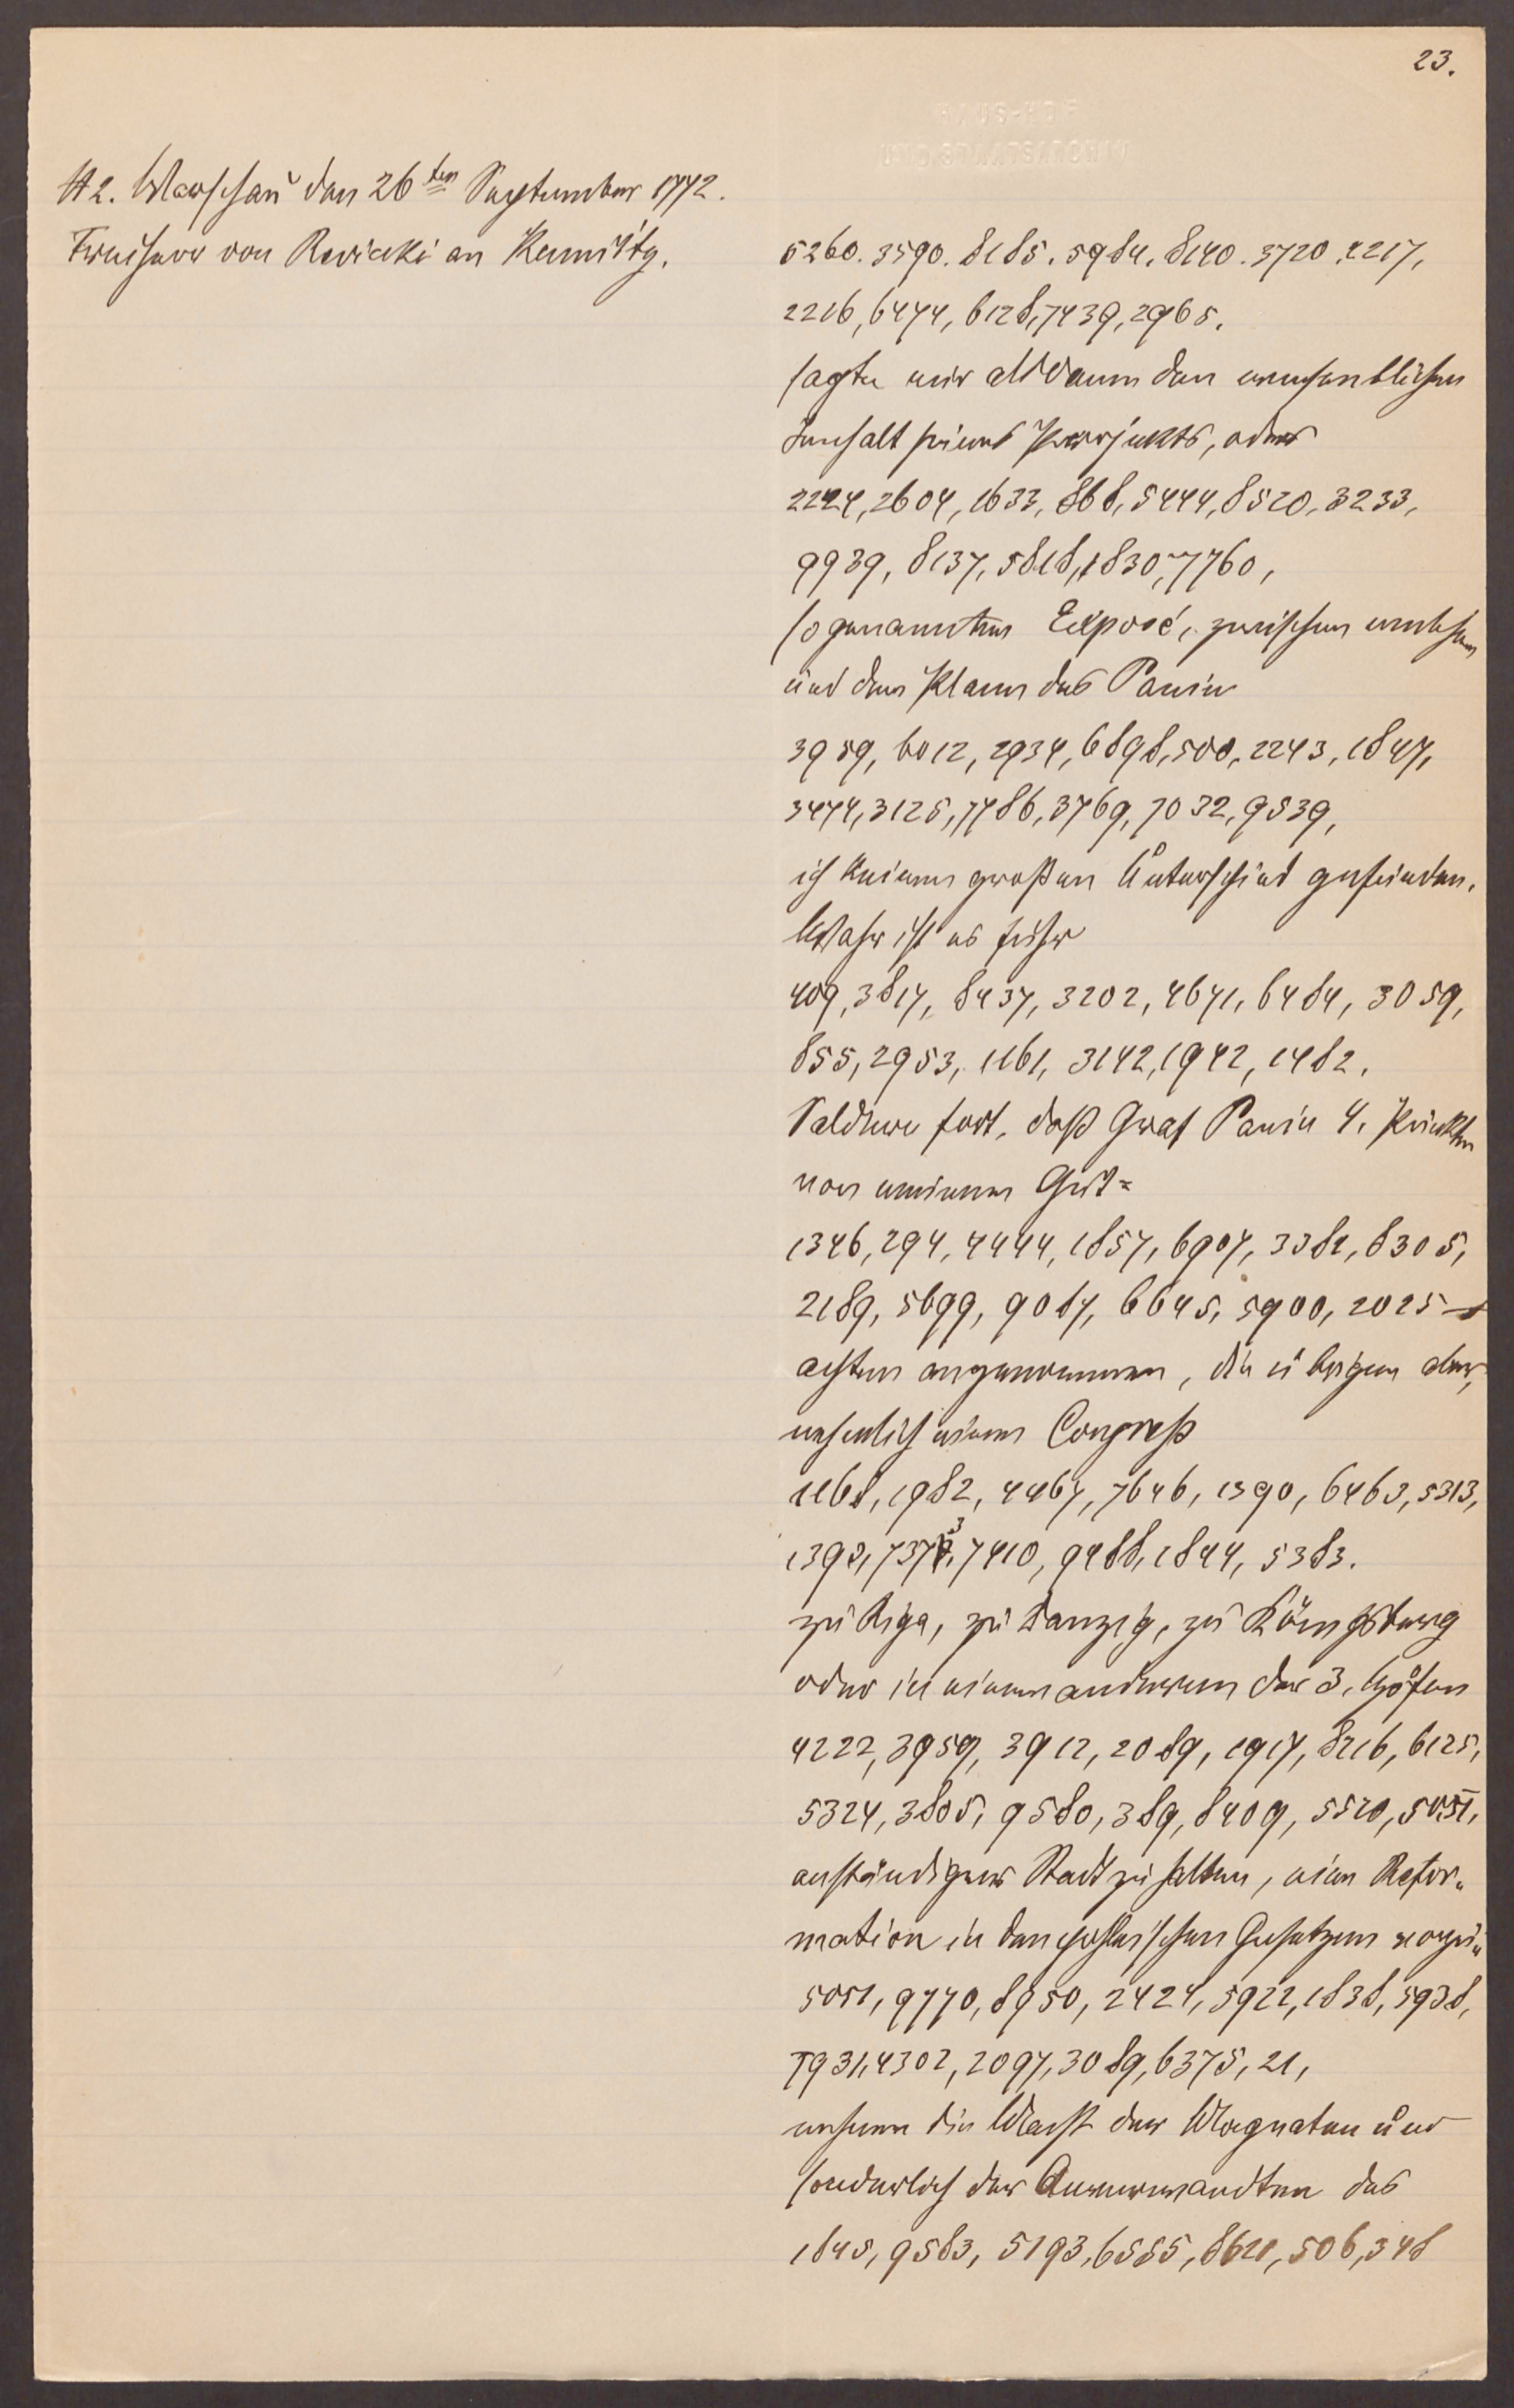 23.
A 2. Warschau den 26ten September 1772.
Freiherr von Reviczki an Kaunitz.
5260. 3590. 8185. 5984. 8140. 3720. 2217,
2216, 6474, 6128, 7439, 2965.
sagte mir alsdann den wesentlichen
Innhalt seines Projekts, oder
2224, 2604, 1633, 868, 5444, 8520, 3233,
9939, 8137, 5818, 1830, 7760,
sogenannten Exposé, zwischen welchem
und dem Plane des Panin
3959, 6012, 2934, 6898, 500, 2243, 1847,
3474, 3125, 7786, 3769, 7032, 9539,
ich keinen großen Unterschied gefunden.
Wahr ist es
409, 3817, 8437, 3202, 4671, 6484, 3059,
855, 2953, 1161, 3142, 1942, 1482.
Saldern fort, daß Graf Panin 4. Punkten
von meinem Gut=
1346, 294, 4444, 1857, 6907, 3382, 8305,
2189, 5699, 9087, 6645, 5900, 2025
achten angenommen, die übrigen aber,
nehmlich einen Congreß
1168, 1982, 4467, 7646, 1390, 6463, 5313,
1390, 7373, 7410, 9488, 1844, 5383.
zu Riga, zu Danzig, zu Königsberg
oder in einem anderen der 3. Höfen
4222, 3959, 3912, 2089, 1917, 8216, 6125,
5324, 3805, 9580, 389, 8409, 5520, 5051,
anständigen Stadt zu halten, eine Refor-
mation in den pohlnischen Gesetzen vorzu-
5051, 9770, 8950, 2424, 5922, 1838, 5938,
7931, 4302, 2097, 3089, 6375, 21,
nehmen die Macht der Magnaten und
sonderlich der Anverwandten des
1845, 9583, 5193, 6555, 8621, 506, 348